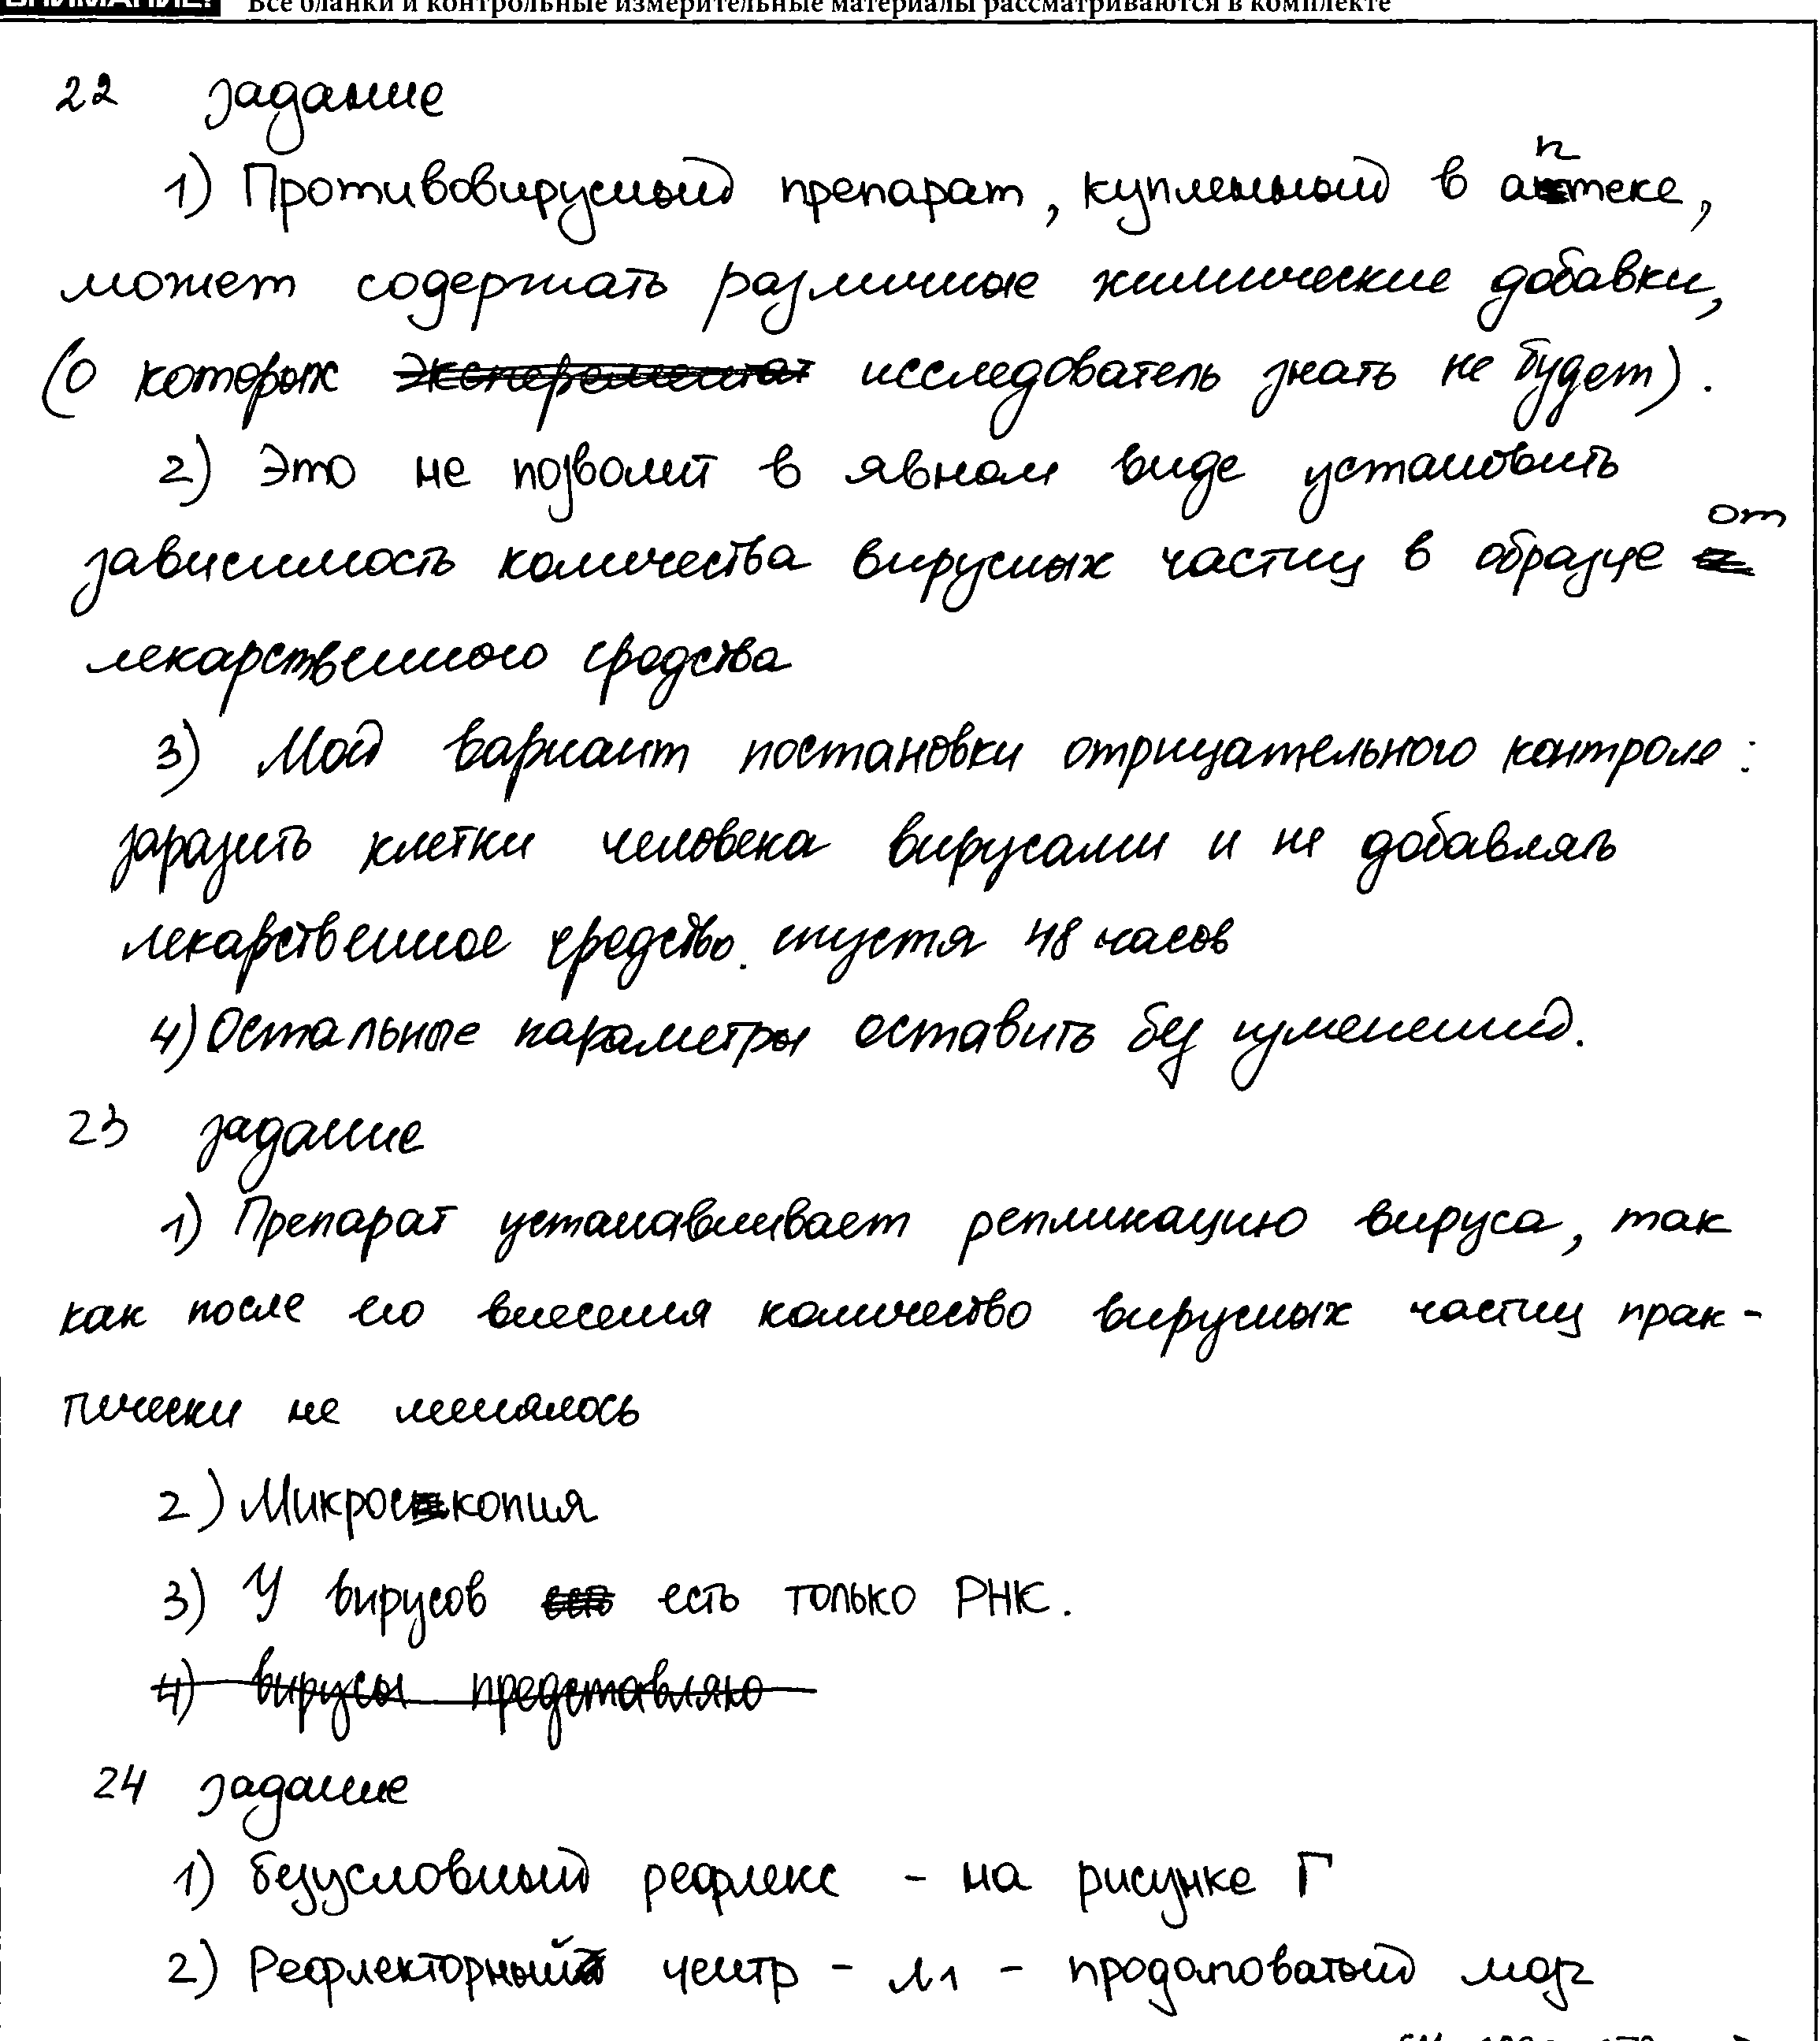 ВНИМАНИЕ! Все бланки и контрольные измерительные материалы рассматриваются в комплекте
22 задание
1) Противовирусный препарат, купленный в аптеке,
может содержать различные химические добавки,
(о которых эксперементат исследователь знать не будет).
2) Это не позволит в явном виде установить
зависимость количества вирусных частиц в образце от
лекарственного средства
3) Мой вариант постановки отрицательного контроля:
заразить клетки человека вирусами и не добавлять
лекарственное средство. спустя 48 часов
4) Остальные параметры оставить без изменений.
23 задание
1) Препарат устанавливает репликацию вируса, так
как после его внесения количество вирусных частиц прак-
тически не менялось
2) Микроскопия
3) У вирусов есть только РНК.
4) вирусы представляю
24 задание
1) безусловный рефлекс - на рисунке Г
2) Рефлекторный центр - л1 - продолговатый мозг